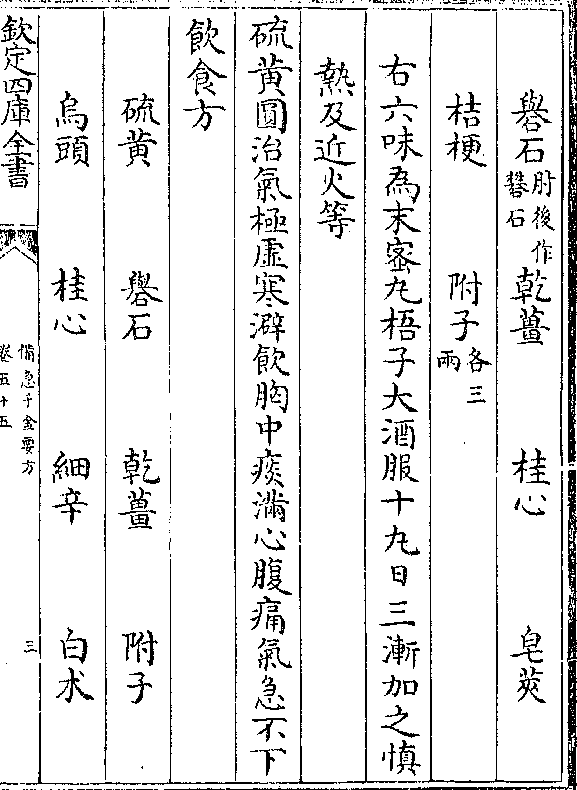 礜石肘後作礬石乾薑桂心皂莢
桔梗附子各三兩
右六味為末蜜丸梧子大酒服十丸日三漸加之慎
熱及近火等
硫黄圓治氣極虛寒澼飲胸中痰滿心腹痛氣急不下
飲食方
硫黄礜石乾薑附子
烏頭桂心細辛白朮
欽定四庫全書
備急千金要方
卷五十五
三